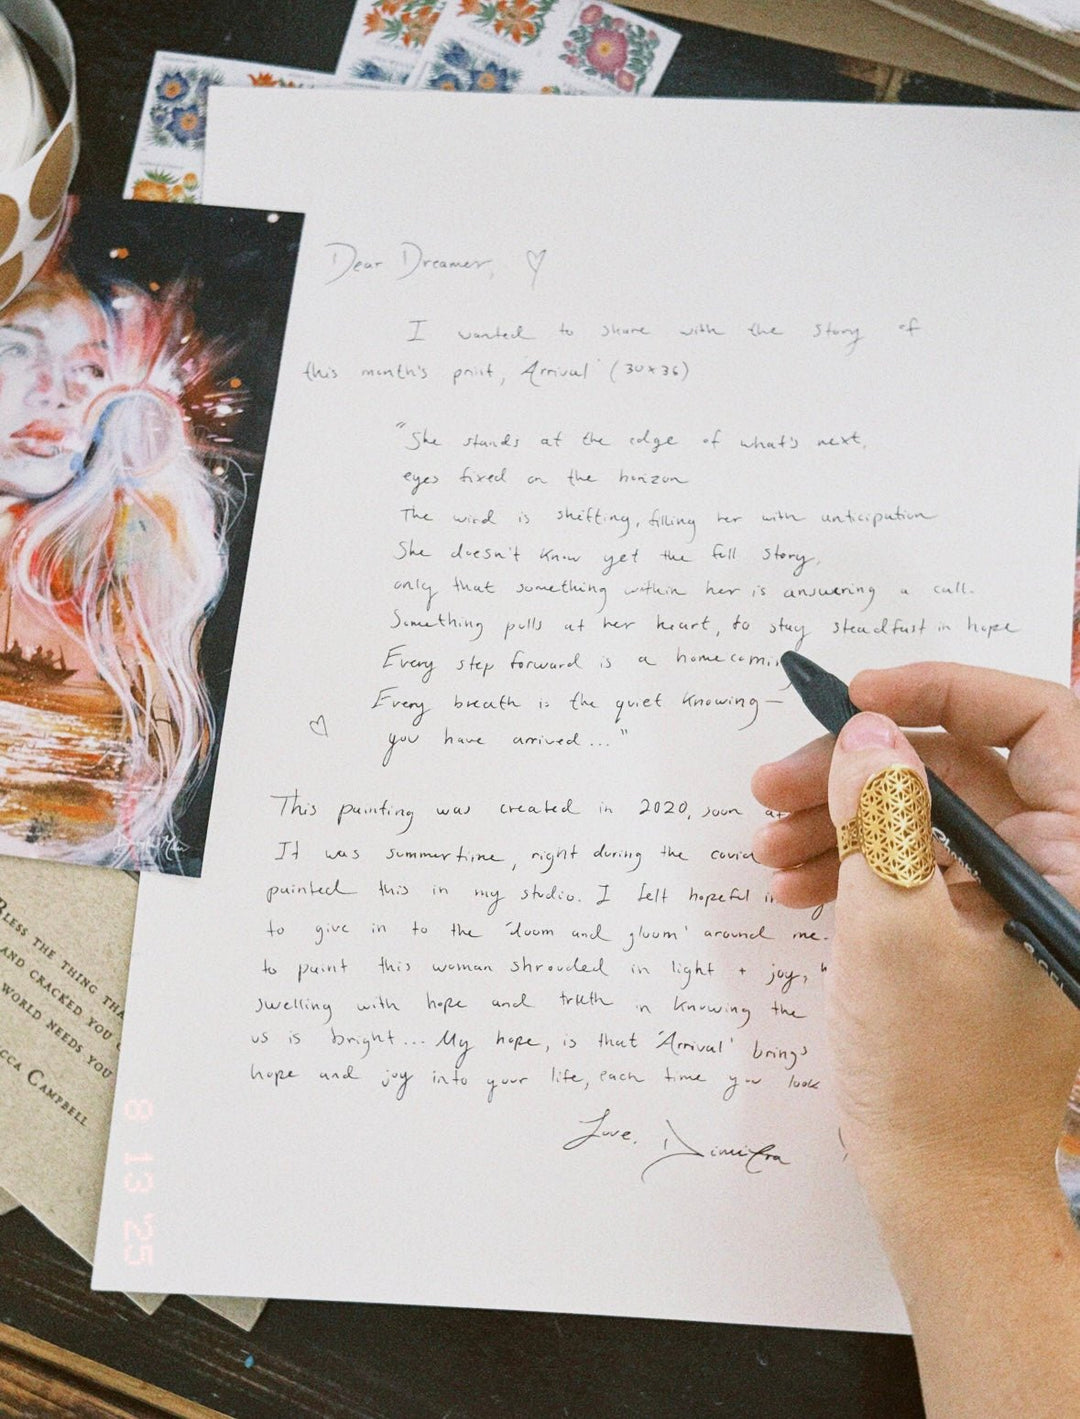 Dear Dreamer, ♡
I wanted to share with the story of
this month's print, 'Arrival' (30x36)
"She stands at the edge of what's next,
eyes fixed on the horizon
The wind is shifting, filling her with anticipation
She doesn't know yet the full story,
only that something within her is answering a call.
Something pulls at her heart, to stay steadfast in hope
Every step forward is a homecomi
Every breath is the quiet knowing—
♡ you have arrived..."
This painting was created in 2020, soon
It was summertime, right during the covid
painted this in my studio. I felt hopeful
to give in to the 'doom and gloom' around me.
to paint this woman shrouded in light + joy,
swelling with hope and truth in knowing the
us is bright... My hope, is that 'Arrival' brings
hope and joy into your life, each time you look
Love, Dimitra
LESS THE THING THA
AND CRACKED YOU
WORLD NEEDS YOU
CCA CAMPBELL
8 13 '25